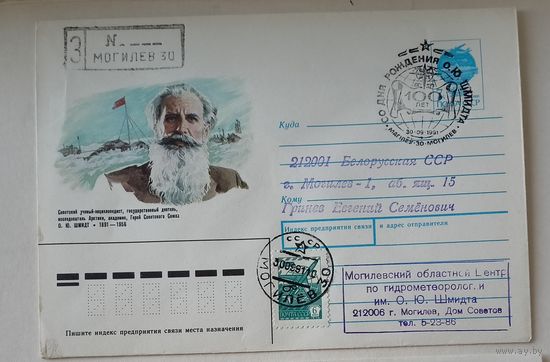 З № МОГИЛЕВ 30
СО ДНЯ РОЖДЕНИЯ О.Ю. ШМИДТА
100
ЛЕТ
30-09-1991
МОГИЛЕВ-30-МОГИЛЕВ
Куда
212001 Белорусская ССР
г. Могилев-1, аб. ящ. 15
Кому
Гринев Евгений Семёнович
Индекс предприятия связи и адрес отправителя
Советский ученый-энциклопедист, государственный деятель,
исследователь Арктики, академик, Герой Советского Союза
О. Ю. ШМИДТ • 1891—1956
СССР
300991
МОГИЛЕВ 30
ПОЧТА СССР
Могилевский областной Центр
по гидрометеорологии
им. О. Ю. Шмидта
212006 г. Могилев, Дом Советов
тел. 5-23-86
Пишите индекс предприятия связи места назначения
www.ay.by